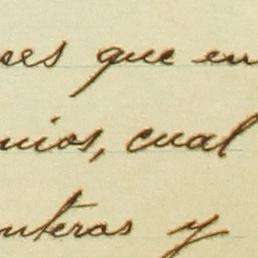 ses que en
nios, cual
nteras y